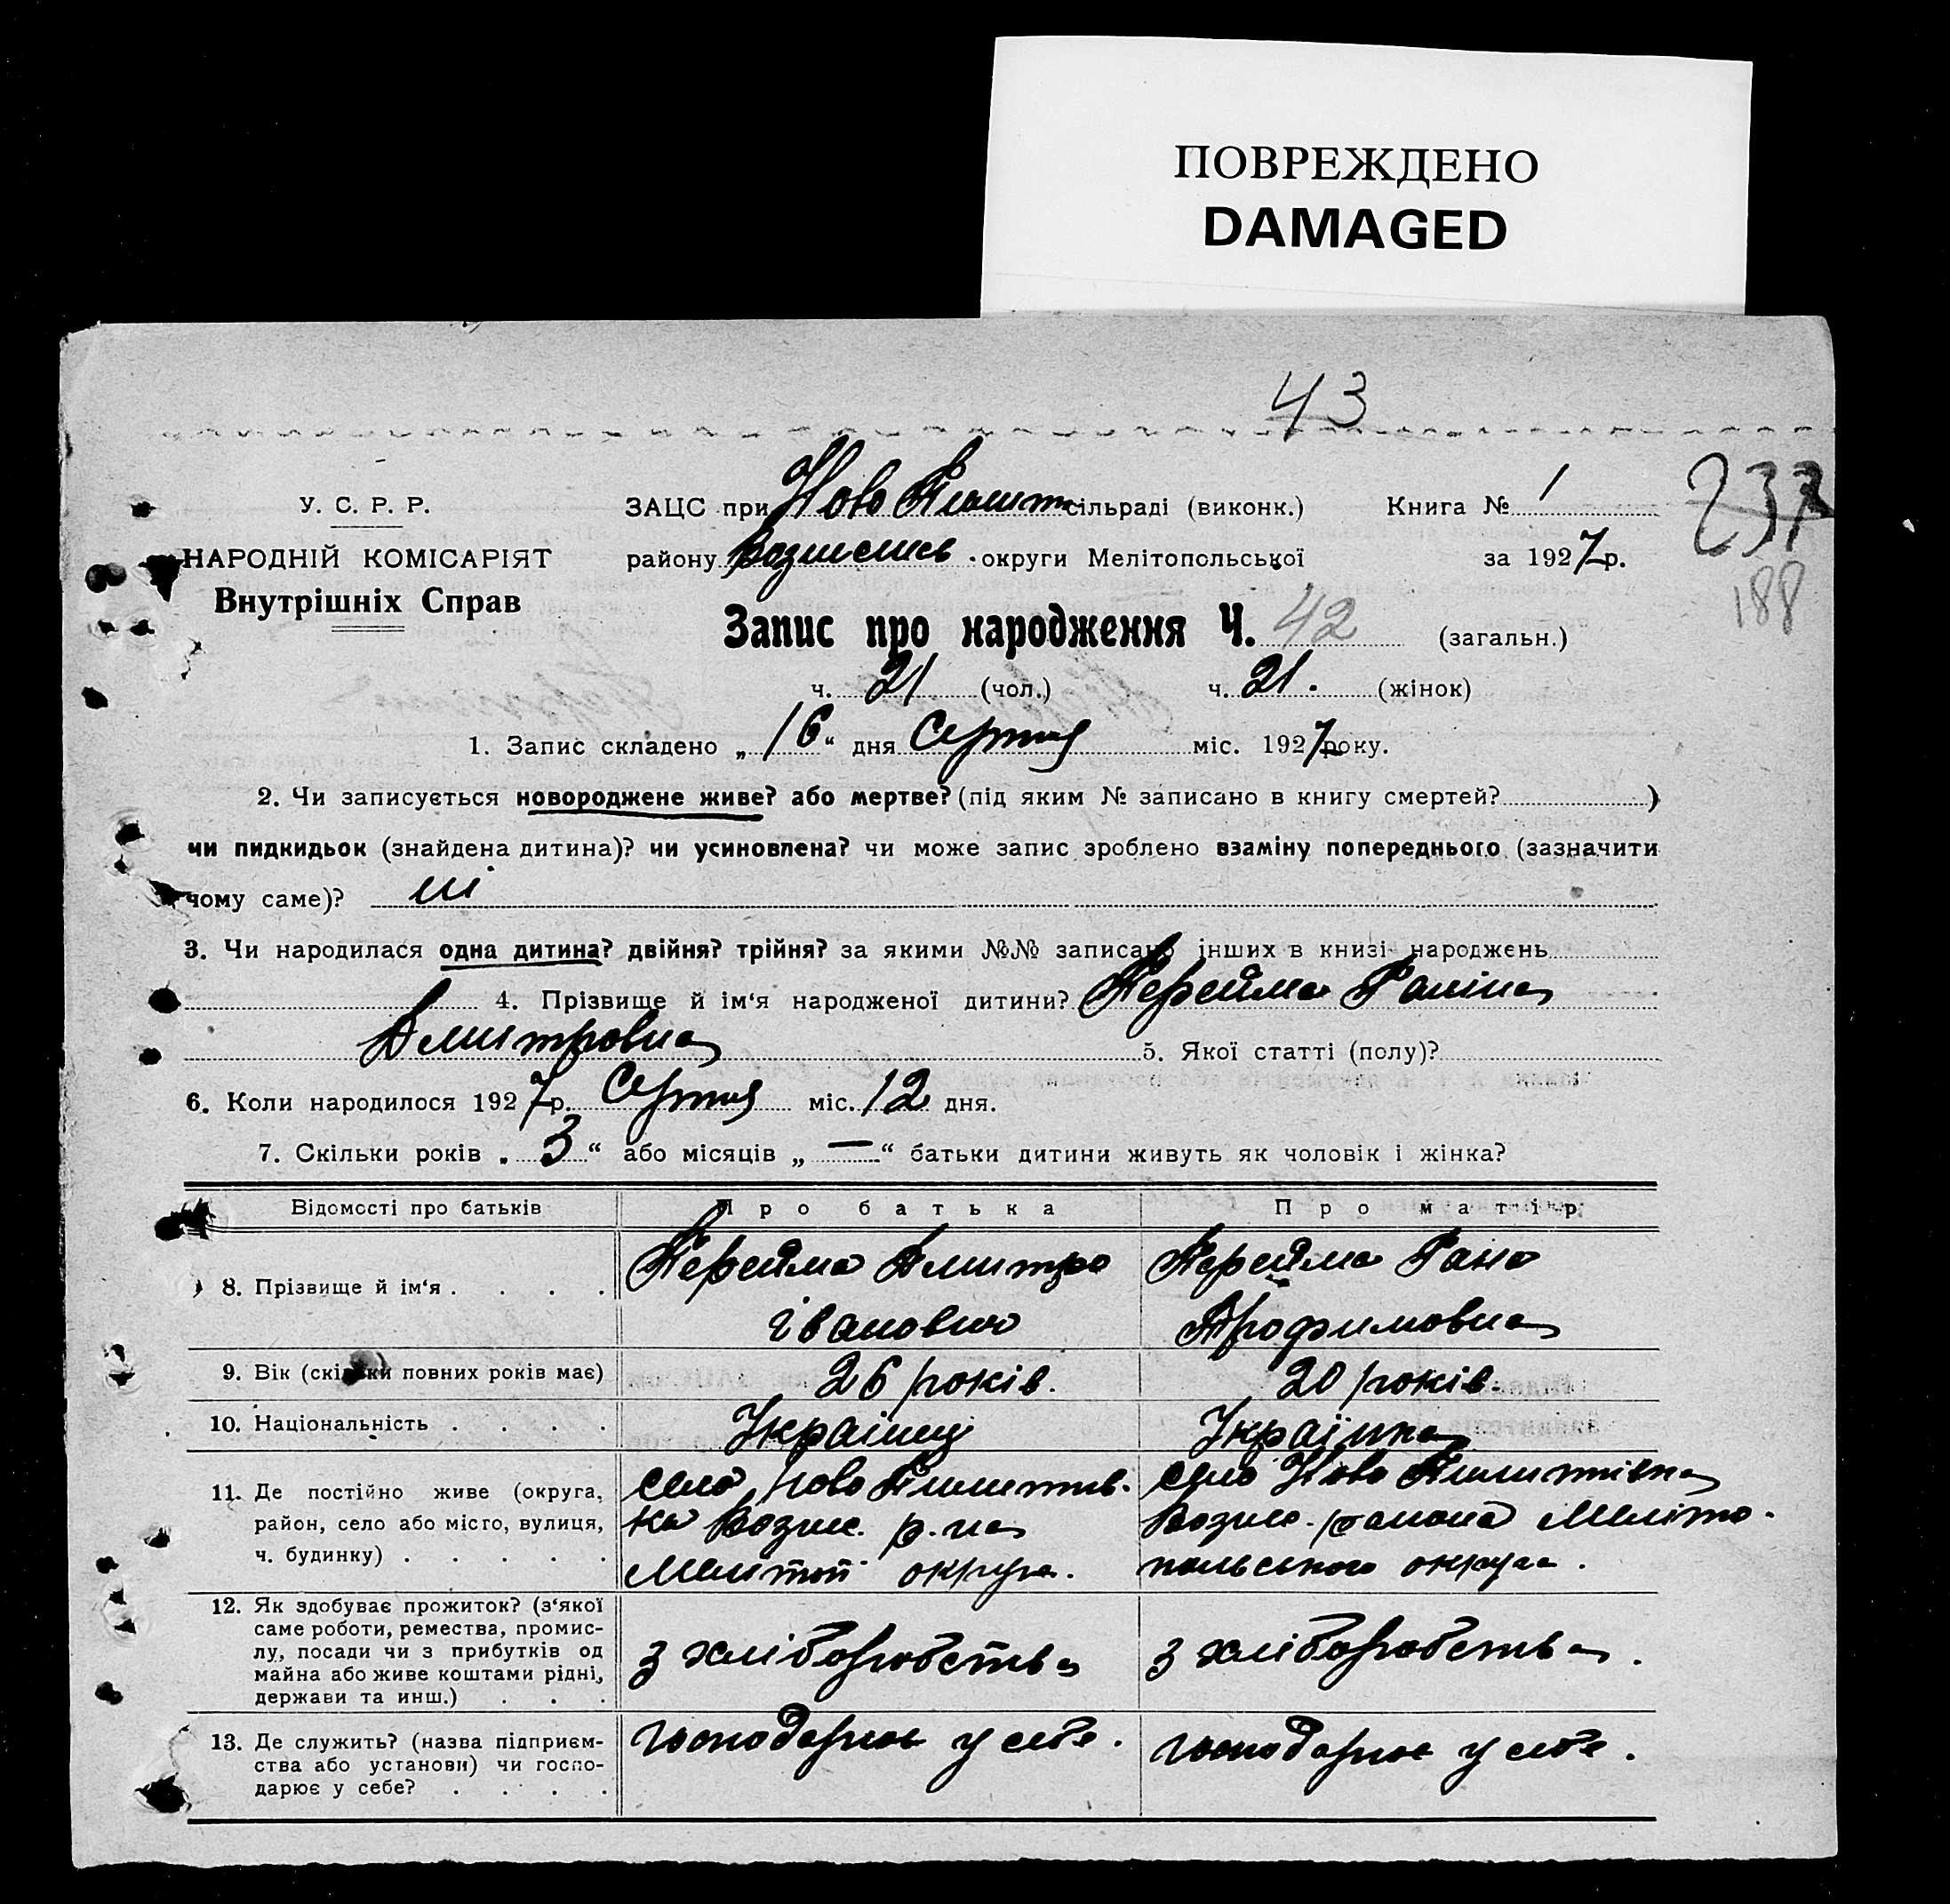 ПОВРЕЖДЕНО
DAMAGED
43
У. С. Р. Р.
НАРОДНІЙ КОМІСАРІЯТ
Внутрішніх Справ
ЗАЦС при Ново сільраді (виконк.) Книга № 1
району округи Мелітопольської за 1927 р.
237
188
Запис про народження Ч. 42 (загальн.)
ч. 21 (чол.) ч. 21. (жінок)
1. Запис складено „16“ дня Серпня міс. 1927 року.
2. Чи записується новороджене живе? або мертве? (під яким № записано в книгу смертей? )
чи пидкидьок (знайдена дитина)? чи усиновлена? чи може запис зроблено взаміну попереднього (зазначити
чому саме)? ні
3. Чи народилася одна дитина? двійня? трійня? за якими №№ записано інших в книзі народжень
4. Прізвище й ім‘я народженої дитини? Перейма Галіна
Дмитровна 5. Якої статті (полу)?
6. Коли народилося 1927 р. Серпня міс. 12 дня.
7. Скільки років „3“ або місяців „—“ батьки дитини живуть як чоловік і жінка?
Відомості про батьків Про батька Про матір
8. Прізвище й ім‘я . . . . Перейма Дмитро Іванович Перейма Трофимовна
9. Вік (скільки повних років має) 26 років. 20 років.
10. Національність . . . . Українец Українка
11. Де постійно живе (округа, район, село або місто, вулиця, ч. будинку) . . . . . село Ново р.на округа. село Ново района Меліто-польського округа.
12. Як здобуває прожиток? (з‘якої саме роботи, ремества, промислу, посади чи з прибутків од майна або живе коштами рідні, держави та инш.) . . . з хліборобства з хліборобства.
13. Де служить? (назва підприємства або установи) чи господарює у себе? . . . . господарює у себе. господарює у себе.